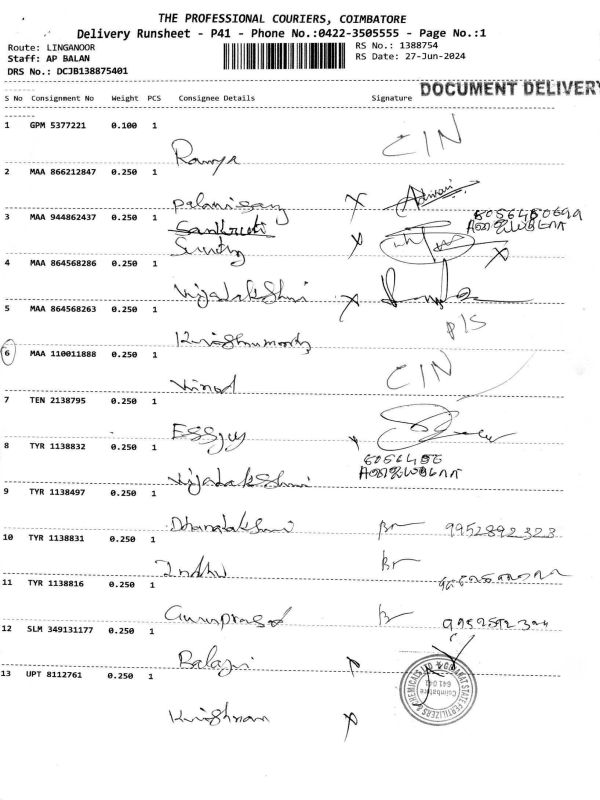 THE PROFESSIONAL COURIERS, COIMBATORE
Delivery Runsheet - P41 - Phone No.:0422-3505555 - Page No.:1
Route: LINGANOOR
Staff: AP BALAN
DRS No.: DCJB138875401
RS No.: 1388754
RS Date: 27-Jun-2024
DOCUMENT DELIVERY
S No Consignment No Weight PCS Consignee Details Signature
1 GPM 5377221 0.100 1
Ramya CIN
2 MAA 866212847 0.250 1
Palanisamy
3 MAA 944862437 0.250 1
4 MAA 864568286 0.250 1
Vijayalakshmi
5 MAA 864568263 0.250 1
Krishnamoorthy P/S
6 MAA 110011888 0.250 1
Vinod CIN
7 TEN 2138795 0.250 1
ESSjay
8 TYR 1138832 0.250 1
Vijayalakshmi
9 TYR 1138497 0.250 1
Dhanalakshmi 9952892323
10 TYR 1138831 0.250 1
Indhu
11 TYR 1138816 0.250 1
Guruprasad
12 SLM 349131177 0.250 1
Balaji
13 UPT 8112761 0.250 1
Krishnan
GUJARAT STATE FERTILIZERS & CHEMICALS LTD
Coimbatore
641 041